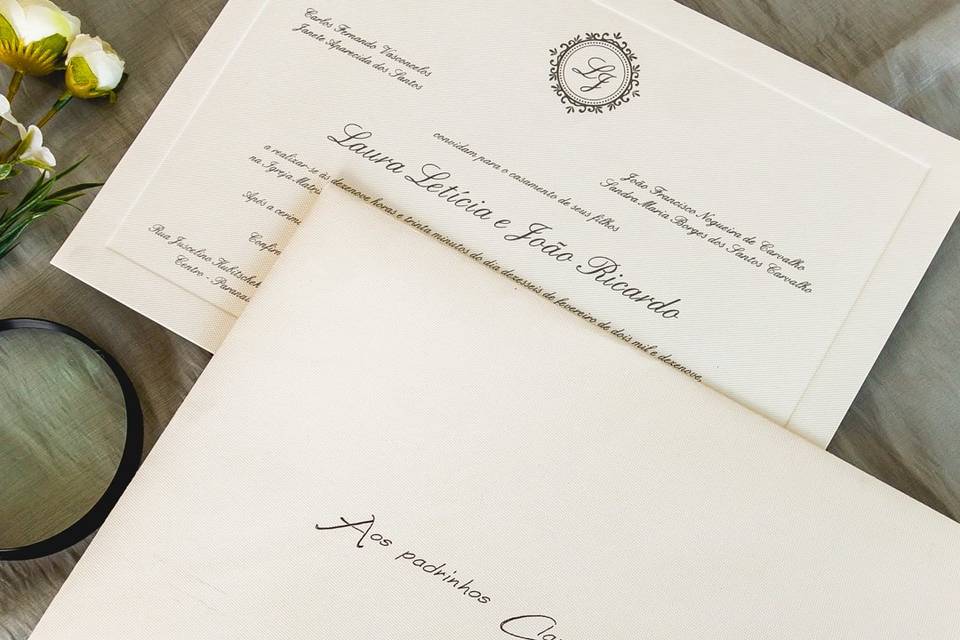 Carlos Fernando Vasconcelos
Janete Aparecida dos Santos
LJ
João Francisco Nogueira de Carvalho
Sandra Maria Borges dos Santos Carvalho
convidam para o casamento de seus filhos
Laura Letícia e João Ricardo
a realizar-se às dezenove horas e trinta minutos do dia dezesseis de fevereiro de dois mil e dezenove,
na Igreja Matri
Após a cerim
Confir
Rua Juscelino Kubitschek
Centro - Parana
Aos padrinhos Cla